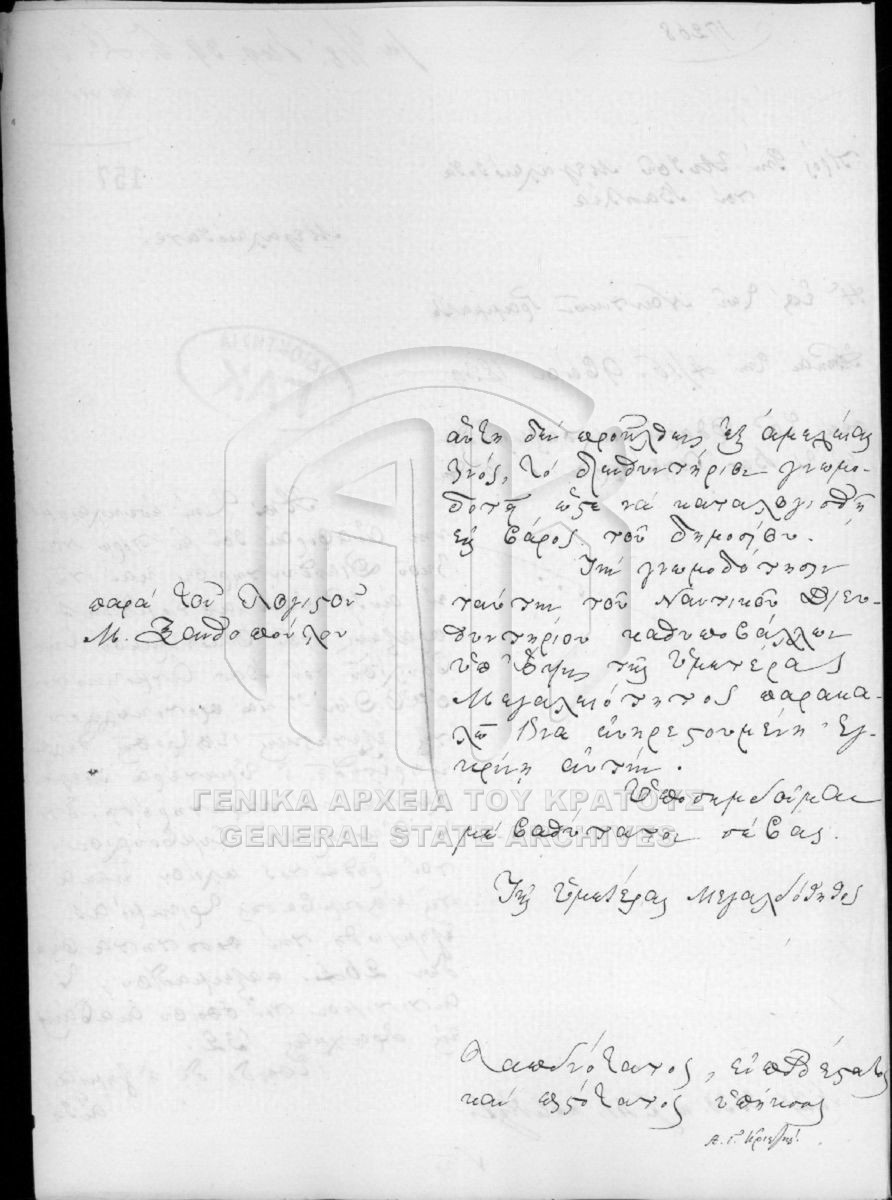 αὕτη δὲν προῆλθεν ἐξ ἀμελείας
τινός, τὸ διευθυντήριον γνωμο-
δοτεῖ ὥςε νὰ καταλογισθῇ
εἰς βάρος τοῦ δημοσίου.
Τὴν γνωμοδότησιν
ταύτην τοῦ Ναυτικοῦ Διευ-
θυντηρίου καθυποβάλλων
ὑπ' ὄψης τῆς Ὑμετέρας
Μεγαλειότητος παρακα-
λῶ ἵνα εὐηρεςουμένη ἐγ-
κρίνῃ αὐτήν.
Ὑποσημειοῦμαι
μὲ βαθύτατον σέβας.
Τῆς Ὑμετέρας Μεγαλειότητος
παρὰ τοῦ Λογιςοῦ
Μ. Ξανθοπούλου
Ταπεινότατος, εὐπειθέςατος
καὶ πιςότατος ὑπήκοος
Α. Γ. Κριεζῆς
ΓΕΝΙΚΑ ΑΡΧΕΙΑ ΤΟΥ ΚΡΑΤΟΥΣ
GENERAL STATE ARCHIVES